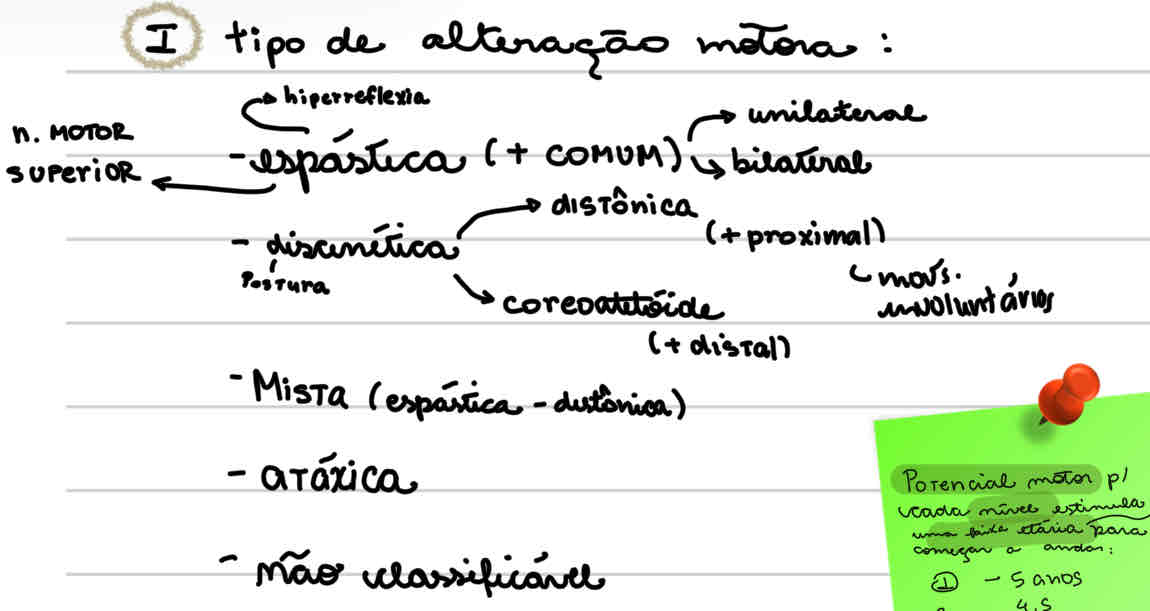 I tipo de alteração motora:
hiperreflexia
n. MOTOR
superior
- espástica (+ COMUM)
unilateral
bilateral
- discinética
Postura
distônica
(+ proximal)
movs.
involuntários
coreoatetóide
(+ distal)
- Mista (espástica - distônica)
- atáxica
- não classificável
Potencial motor p/
cada nível estimula
uma faixa etária para
começar a andar:
I - 5 anos
4,5